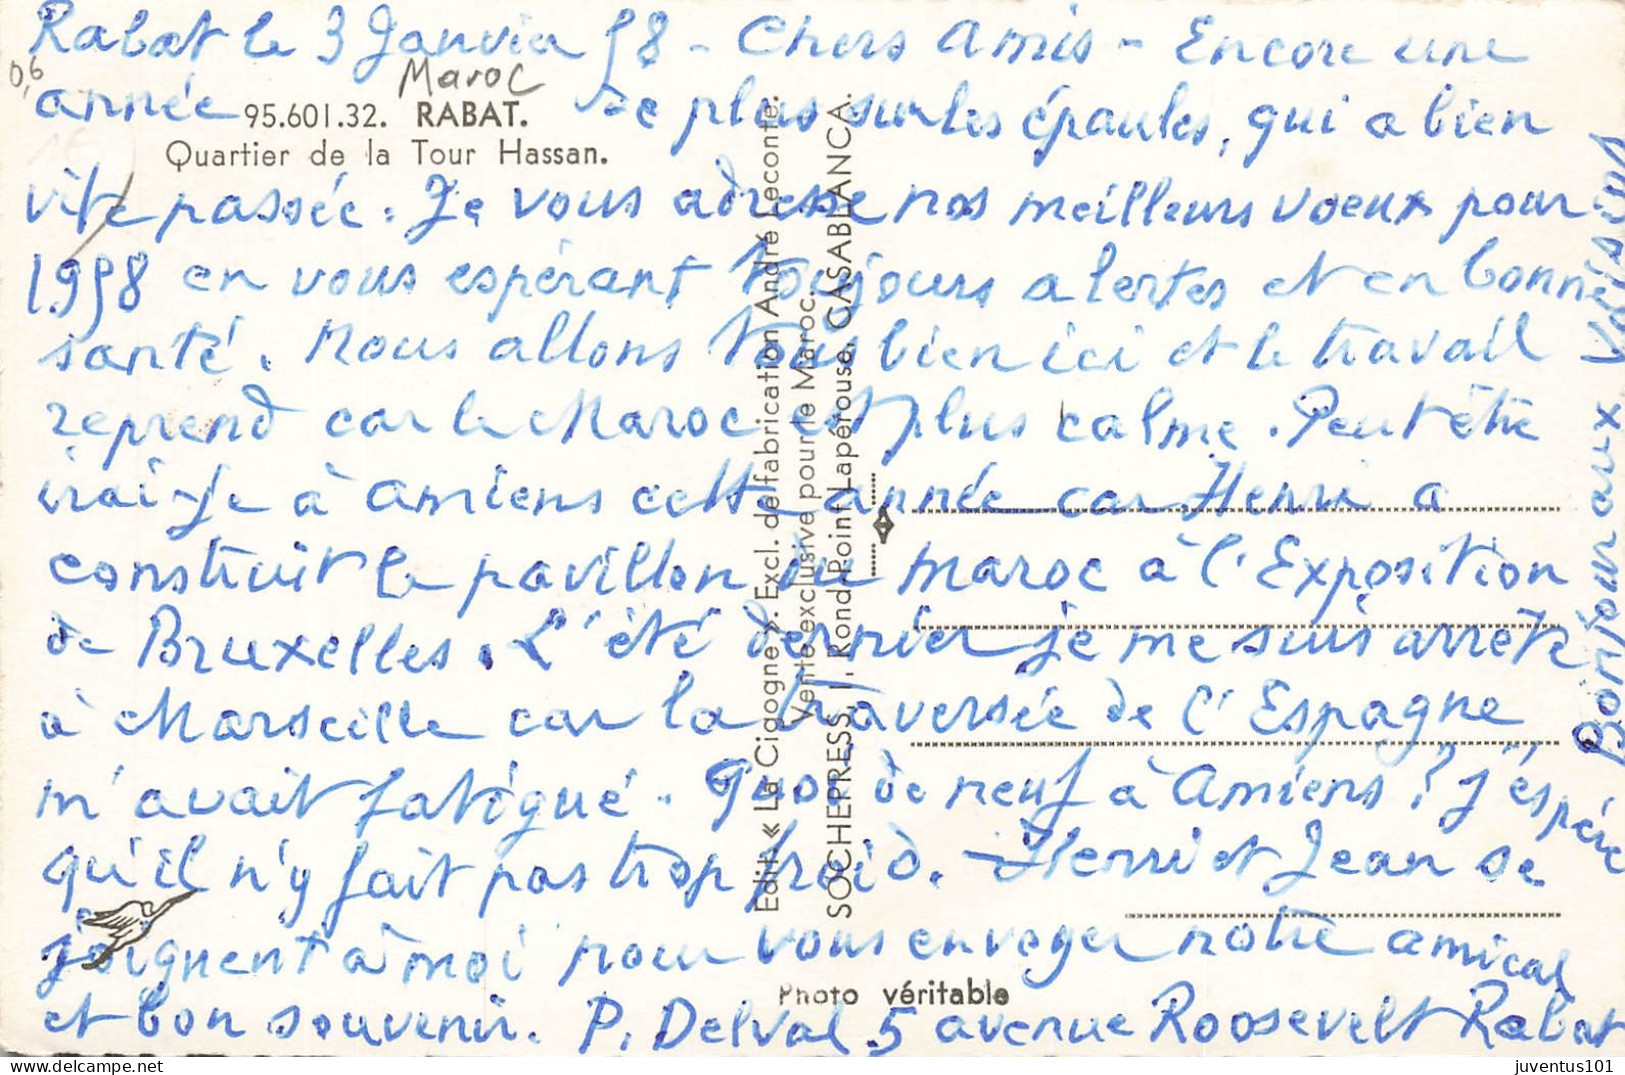 Rabat le 3 Janvier 58 - Chers Amis - Encore une
0,6
Maroc
année de plus sur les épaules, qui a bien
95.601.32. RABAT.
Quartier de la Tour Hassan.
vite passée. Je vous adresse nos meilleurs voeux pour
1958 en vous espérant toujours alertes et en bonne
santé. Nous allons tous bien ici et le travail
reprend car le Maroc est plus calme. Peut être
irai-je à Amiens cette année car Henri a
construit le pavillon du Maroc à l'Exposition
de Bruxelles. L'été dernier je me suis arrêté
à Marseille car la traversée de l'Espagne
m'avait fatigué. Quoi de neuf à Amiens ? J'espère
qu'il n'y fait pas trop froid. Henri et Jean se
joignent à moi pour vous envoyer notre amical
et bon souvenir. P. Delval 5 avenue Roosevelt Rabat
Bonjour aux Voisins
Edit. « La Cigogne ». Excl. de fabrication André Leconte.
Vente exclusive pour le Maroc.
SOCHEPRESS, 1, Rond-Point Lapérouse, CASABLANCA.
Photo véritable
juventus101